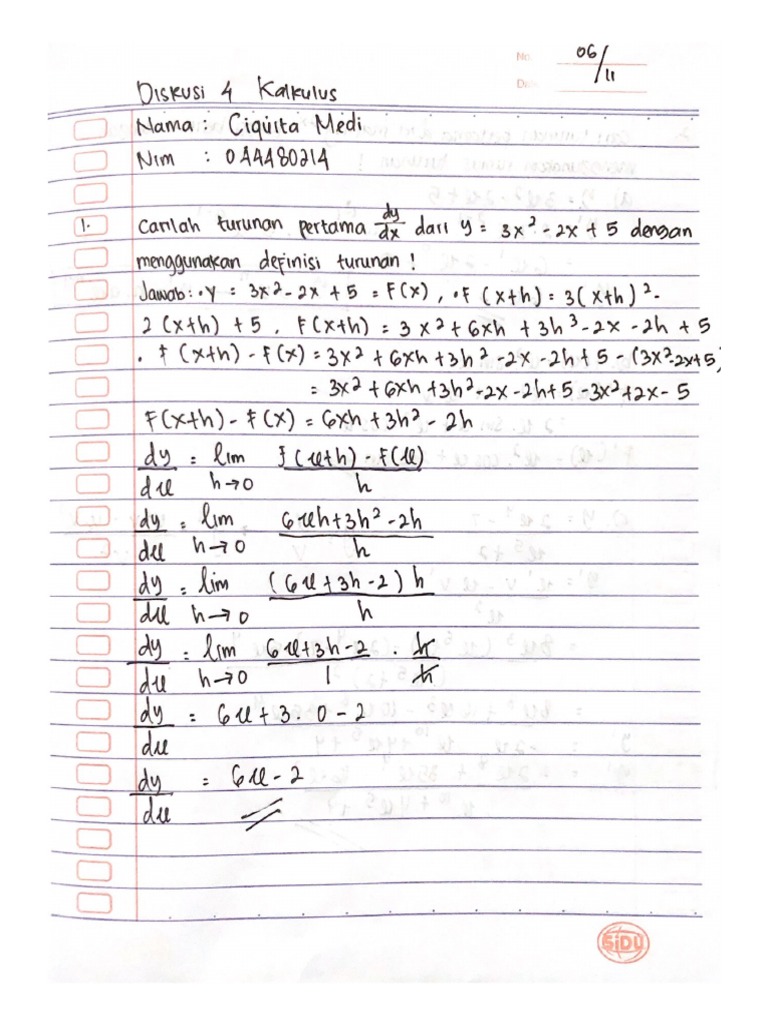 No. 06/11
Date
Diskusi 4 Kalkulus
Nama : Ciquita Medi
Nim : 044480214
1. Carilah turunan pertama dy/dx dari y = 3x² - 2x + 5 dengan
menggunakan definisi turunan !
Jawab : • Y = 3x² - 2x + 5 = F(x) , • F (x+h) = 3(x+h)² -
2 (x+h) + 5 , F(x+h) = 3x² + 6xh + 3h³ - 2x - 2h + 5
• F (x+h) - F(x) = 3x² + 6xh + 3h² - 2x - 2h + 5 - (3x²-2x+5)
= 3x² + 6xh + 3h² - 2x - 2h + 5 - 3x² + 2x - 5
F(x+h) - F(x) = 6xh + 3h² - 2h
dy/dx = lim h→0 F(x+h) - F(x) / h
dy/dx = lim h→0 6xh + 3h² - 2h / h
dy/dx = lim h→0 (6x + 3h - 2) h / h
dy/dx = lim h→0 6x + 3h - 2 / 1 . h/h
dy/dx = 6x + 3 . 0 - 2
dy/dx = 6x - 2
SiDU